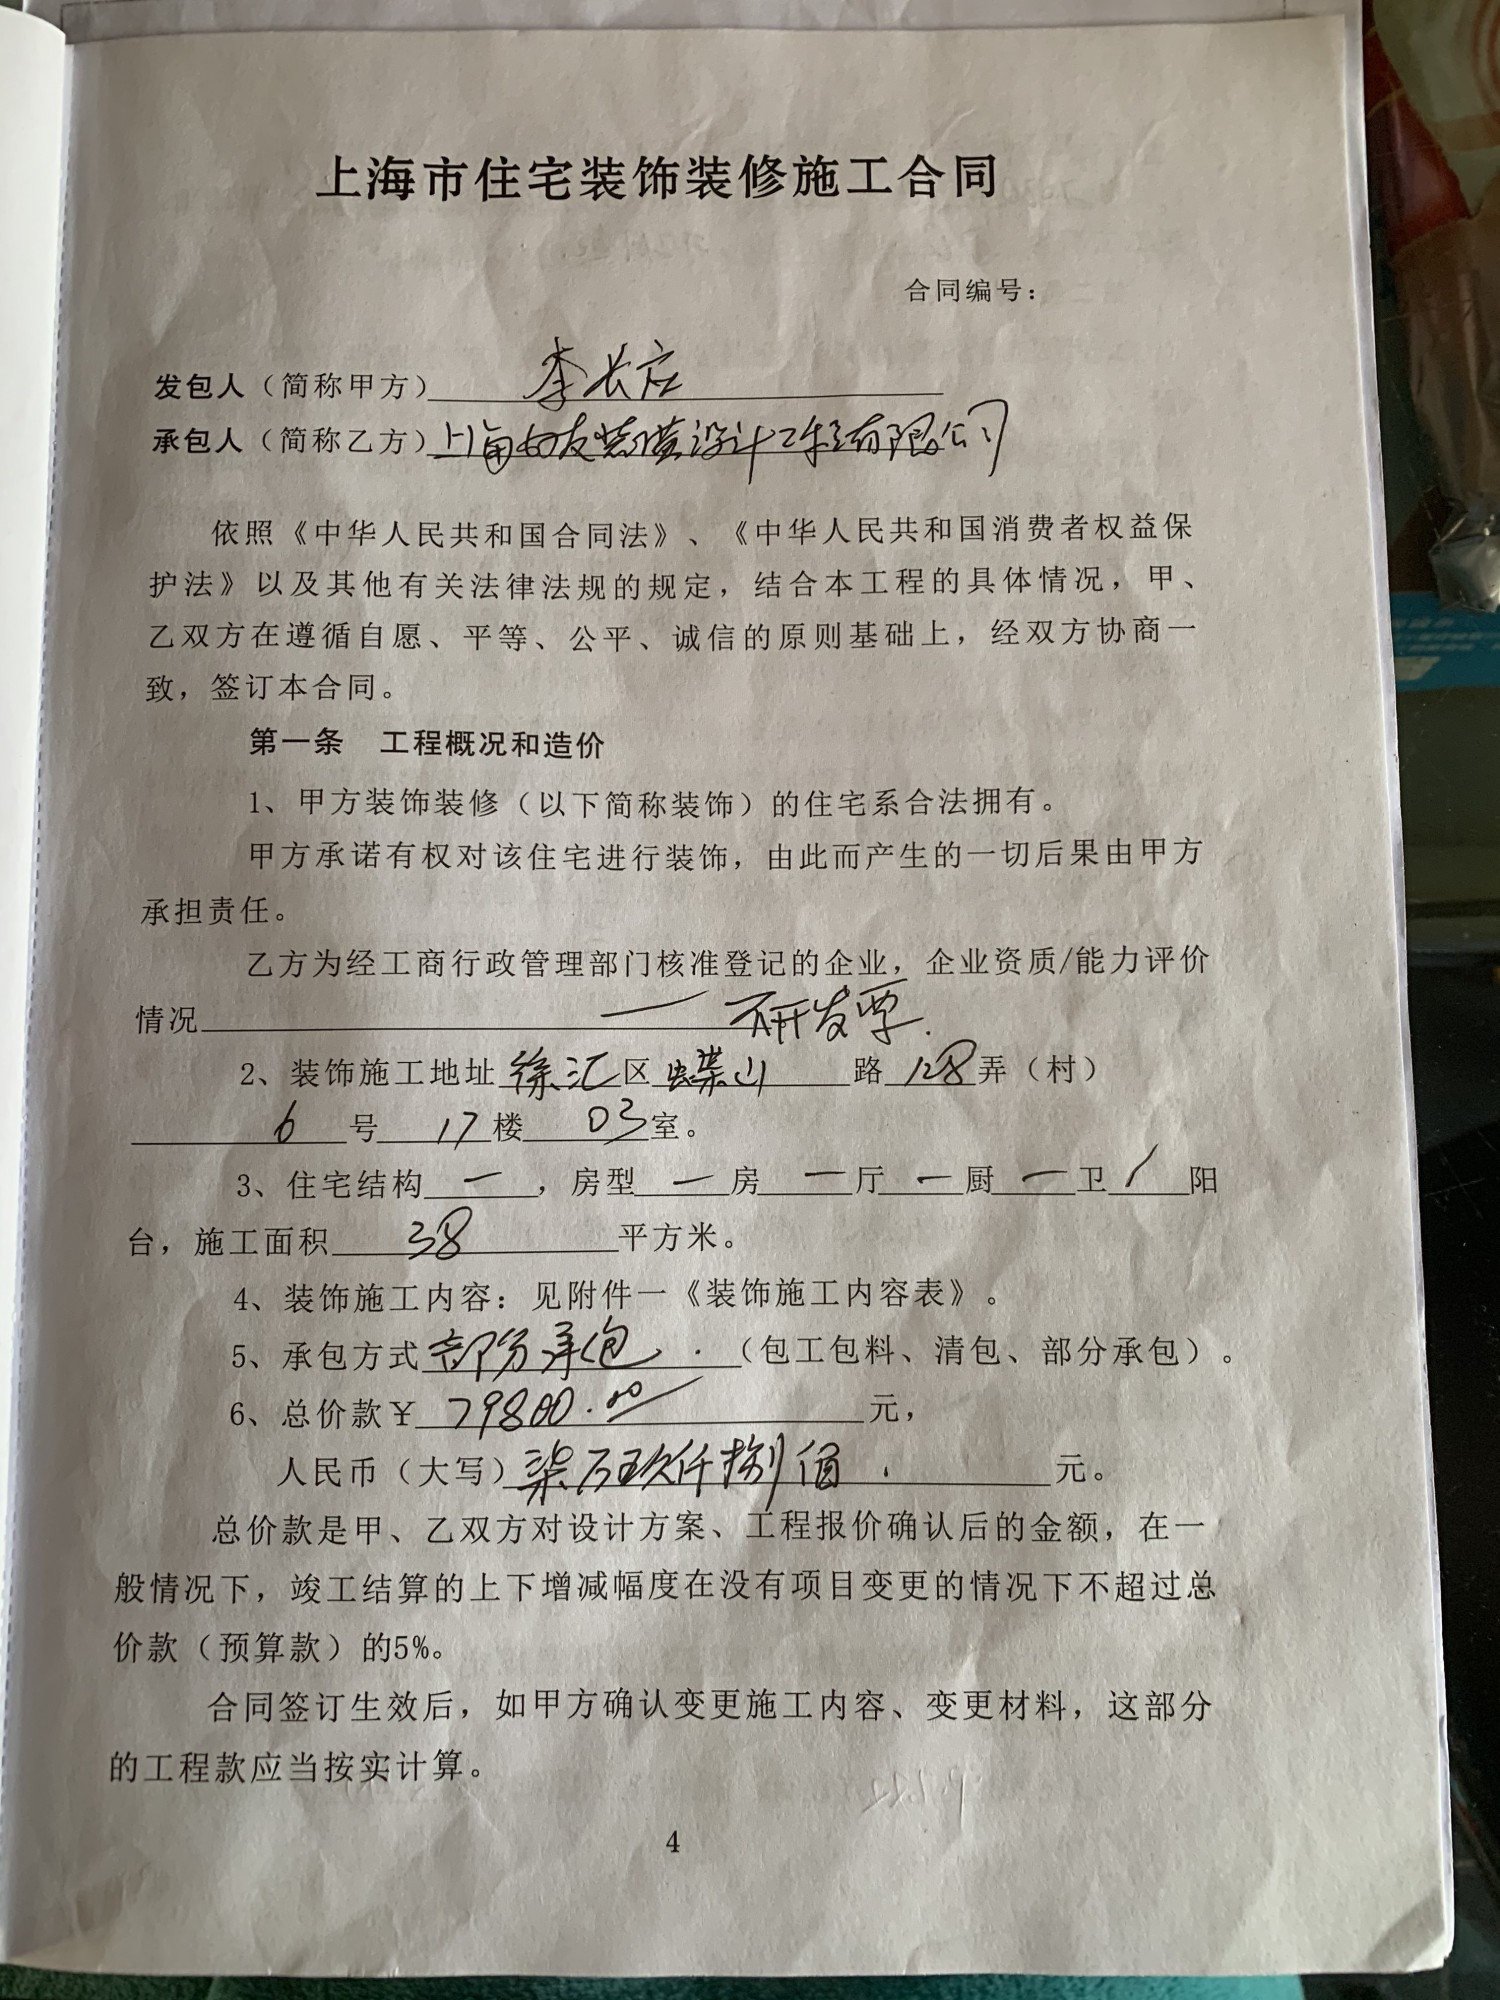 上海市住宅装饰装修施工合同
合同编号：
发包人（简称甲方）李长应
承包人（简称乙方）上海 友装潢设计工程有限公司
依照《中华人民共和国合同法》、《中华人民共和国消费者权益保
护法》以及其他有关法律法规的规定，结合本工程的具体情况，甲、
乙双方在遵循自愿、平等、公平、诚信的原则基础上，经双方协商一
致，签订本合同。
第一条 工程概况和造价
1、甲方装饰装修（以下简称装饰）的住宅系合法拥有。
甲方承诺有权对该住宅进行装饰，由此而产生的一切后果由甲方
承担责任。
乙方为经工商行政管理部门核准登记的企业，企业资质/能力评价
情况 一 不开发票.
2、装饰施工地址徐汇区 蝶山 路 128弄（村）
6 号 17 楼 03 室。
3、住宅结构 一 ，房型 一 房 一 厅 一 厨 一 卫 / 阳
台，施工面积 38 平方米。
4、装饰施工内容：见附件一《装饰施工内容表》。
5、承包方式部分承包．（包工包料、清包、部分承包）。
6、总价款￥79800.00元，
人民币（大写）柒万玖仟捌佰．元。
总价款是甲、乙双方对设计方案、工程报价确认后的金额，在一
般情况下，竣工结算的上下增减幅度在没有项目变更的情况下不超过总
价款（预算款）的5%。
合同签订生效后，如甲方确认变更施工内容、变更材料，这部分
的工程款应当按实计算。
4